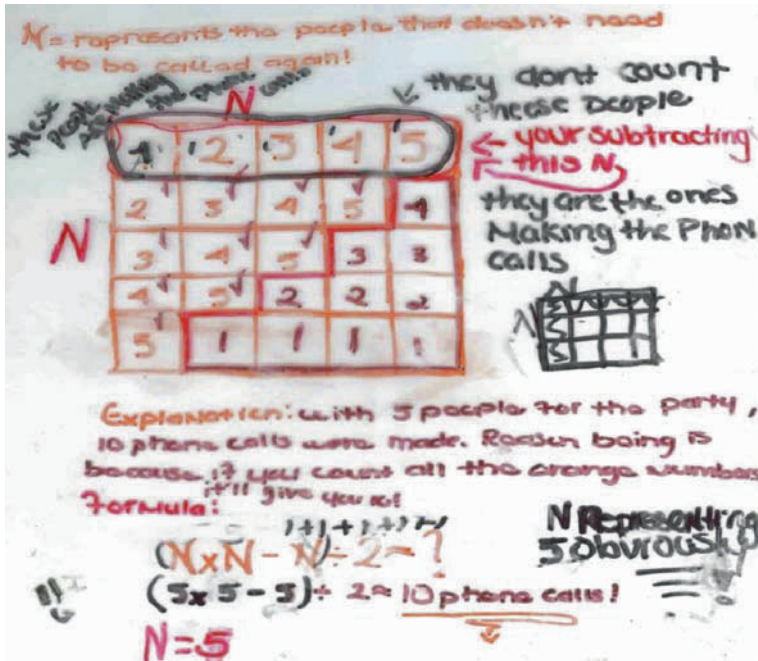 N = represents the people that doesn't need
to be called again!
these people are making the phone calls
N
they dont count
theese people
1 2 3 4 5
← your subtracting
this N
2 3 4 5 4
they are the ones
Making the PHON
calls
N
3 4 5 3 3
4 5 2 2 2
5 1 1 1 1
N
N
5
5
5
Explanation: with 5 people for the party,
10 phone calls were made. Reason being is
because if you count all the orange numbers
it'll give you 10!
Formula:
1+1+1+1+1
(N x N - N) ÷ 2 = ?
N Representing
5 Obviously!
(5 x 5 - 5) ÷ 2 = 10 phone calls!
N = 5